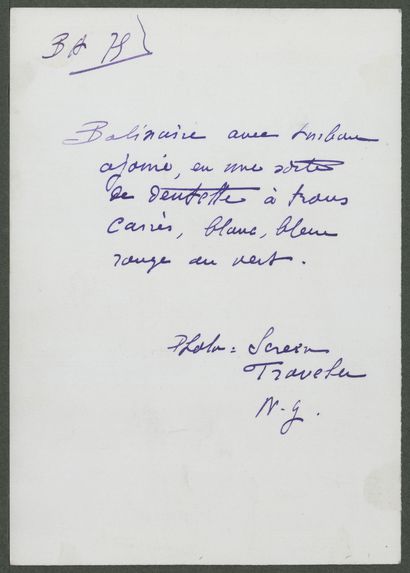 BA 75
Balinaise avec turban
ajouré, en une sorte
de dentelle à trous
carrés, blanc, bleu
rouge ou vert.
Photo = Screen
Traveler
N-G.